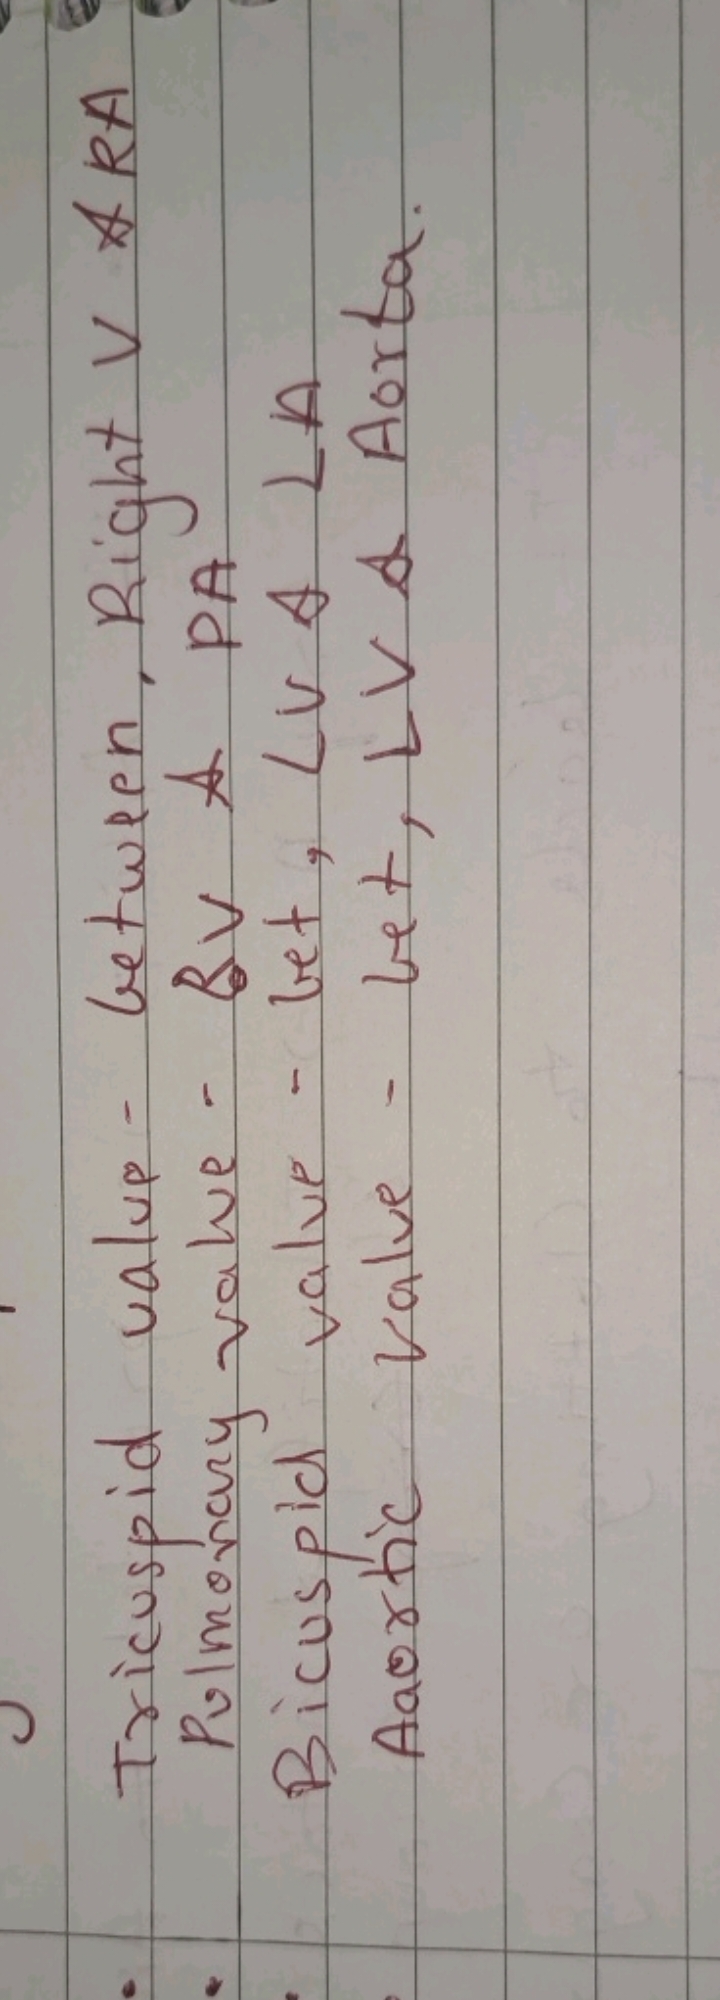 • Tricuspid valve - between, Right V & RA
• Pulmonary valve - RV & PA
• Bicuspid valve - bet, LV & LA
• Aaortic valve - bet, LV & Aorta.